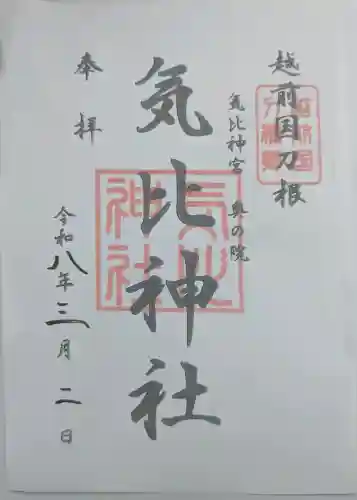 越前国刀根
気比神宮 奥の院
気比神社
奉拝
令和八年三月二日
気比神社